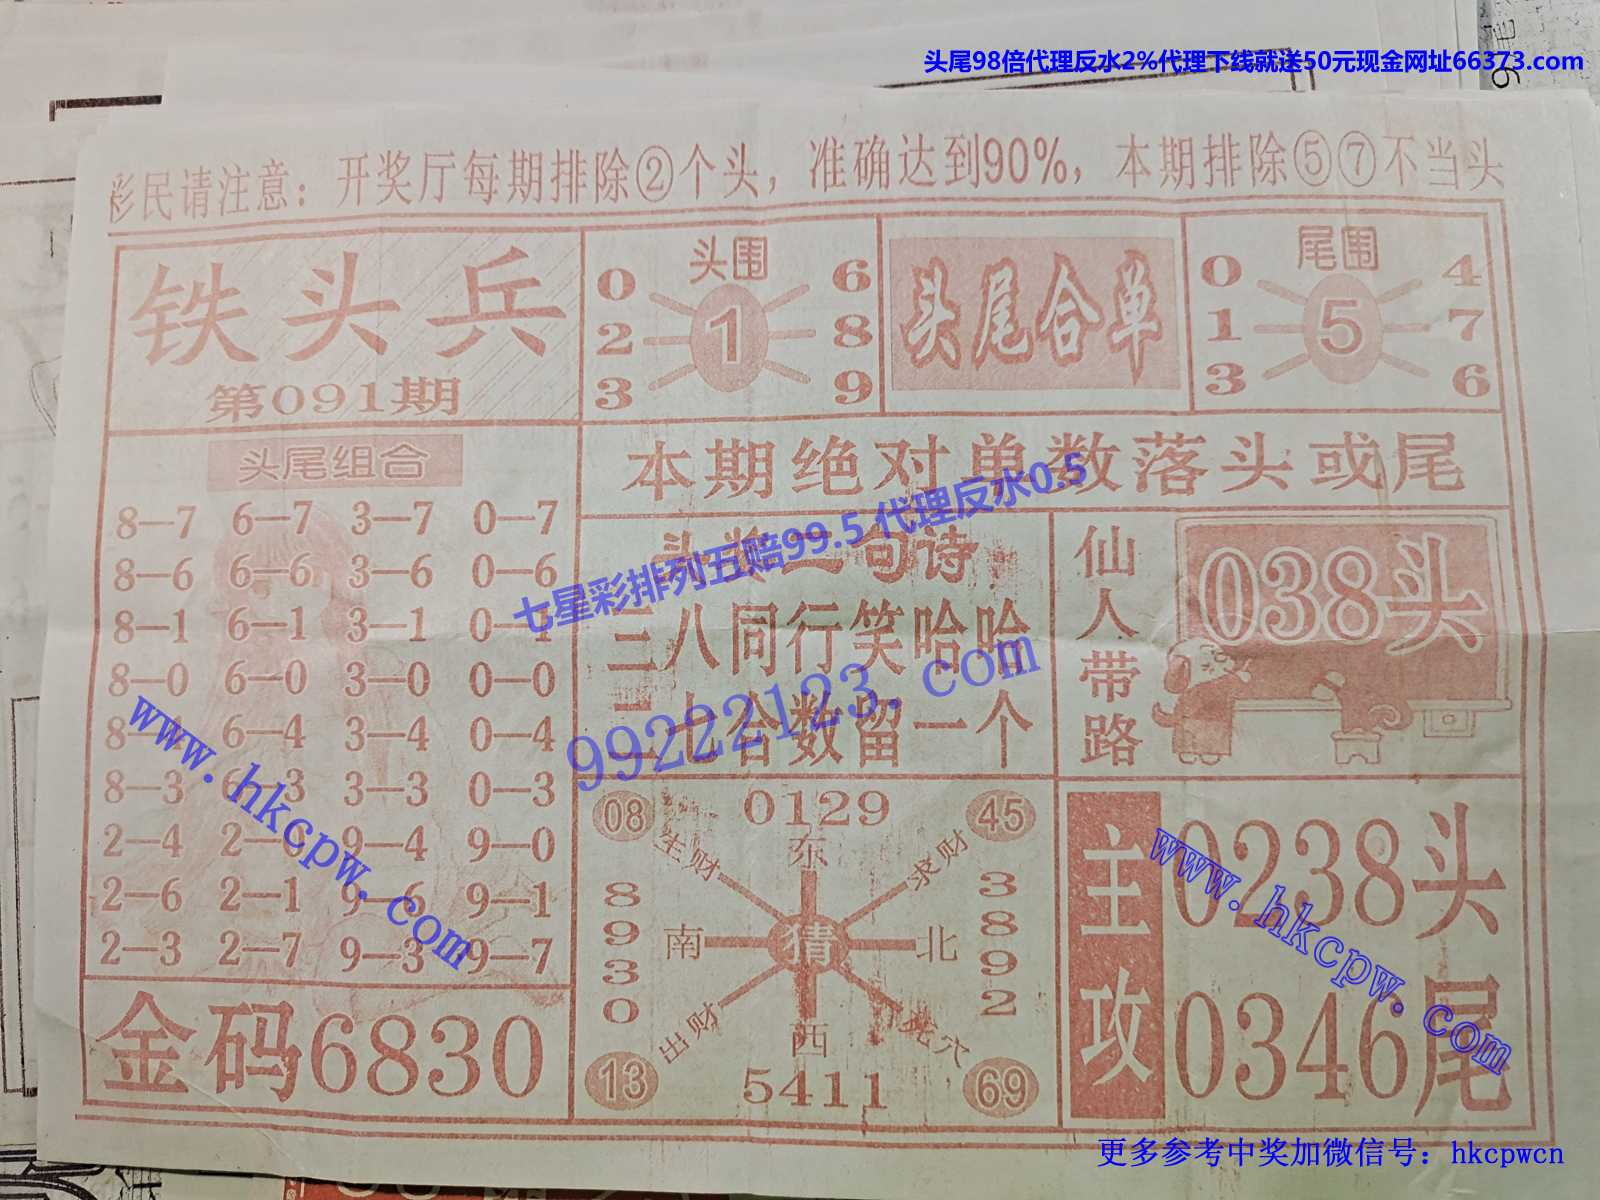 头尾98倍代理反水2%代理下线就送50元现金网址66373.com
彩民请注意：开奖厅每期排除②个头，准确达到90%，本期排除⑤⑦不当头
铁头兵
第091期
头围
0 6
2 1 8
3 9
头尾合单
尾围
0 4
1 5 7
3 6
头尾组合
8—7 6—7 3—7 0—7
8—6 6—6 3—6 0—6
8—1 6—1 3—1 0—1
8—0 6—0 3—0 0—0
8— 6—4 3—4 0—4
8—3 6—3 3—3 0—3
2—4 2—0 9—4 9—0
2—6 2—1 9—6 9—1
2—3 2—7 9—3 9—7
金码6830
本期绝对单数落头或尾
七星彩排列五赔99.5 代理反水0.5
头奖二句诗
三八同行笑哈哈
二七合数留一个
99222123.com
仙人带路
038头
08 0129 45
生财 东 求财
8930 南 猜 北 3892
出财 西
13 5411 69
主攻
0238头
0346尾
www.hkcpw.com
www.hkcpw.com
更多参考中奖加微信号：hkcpwcn